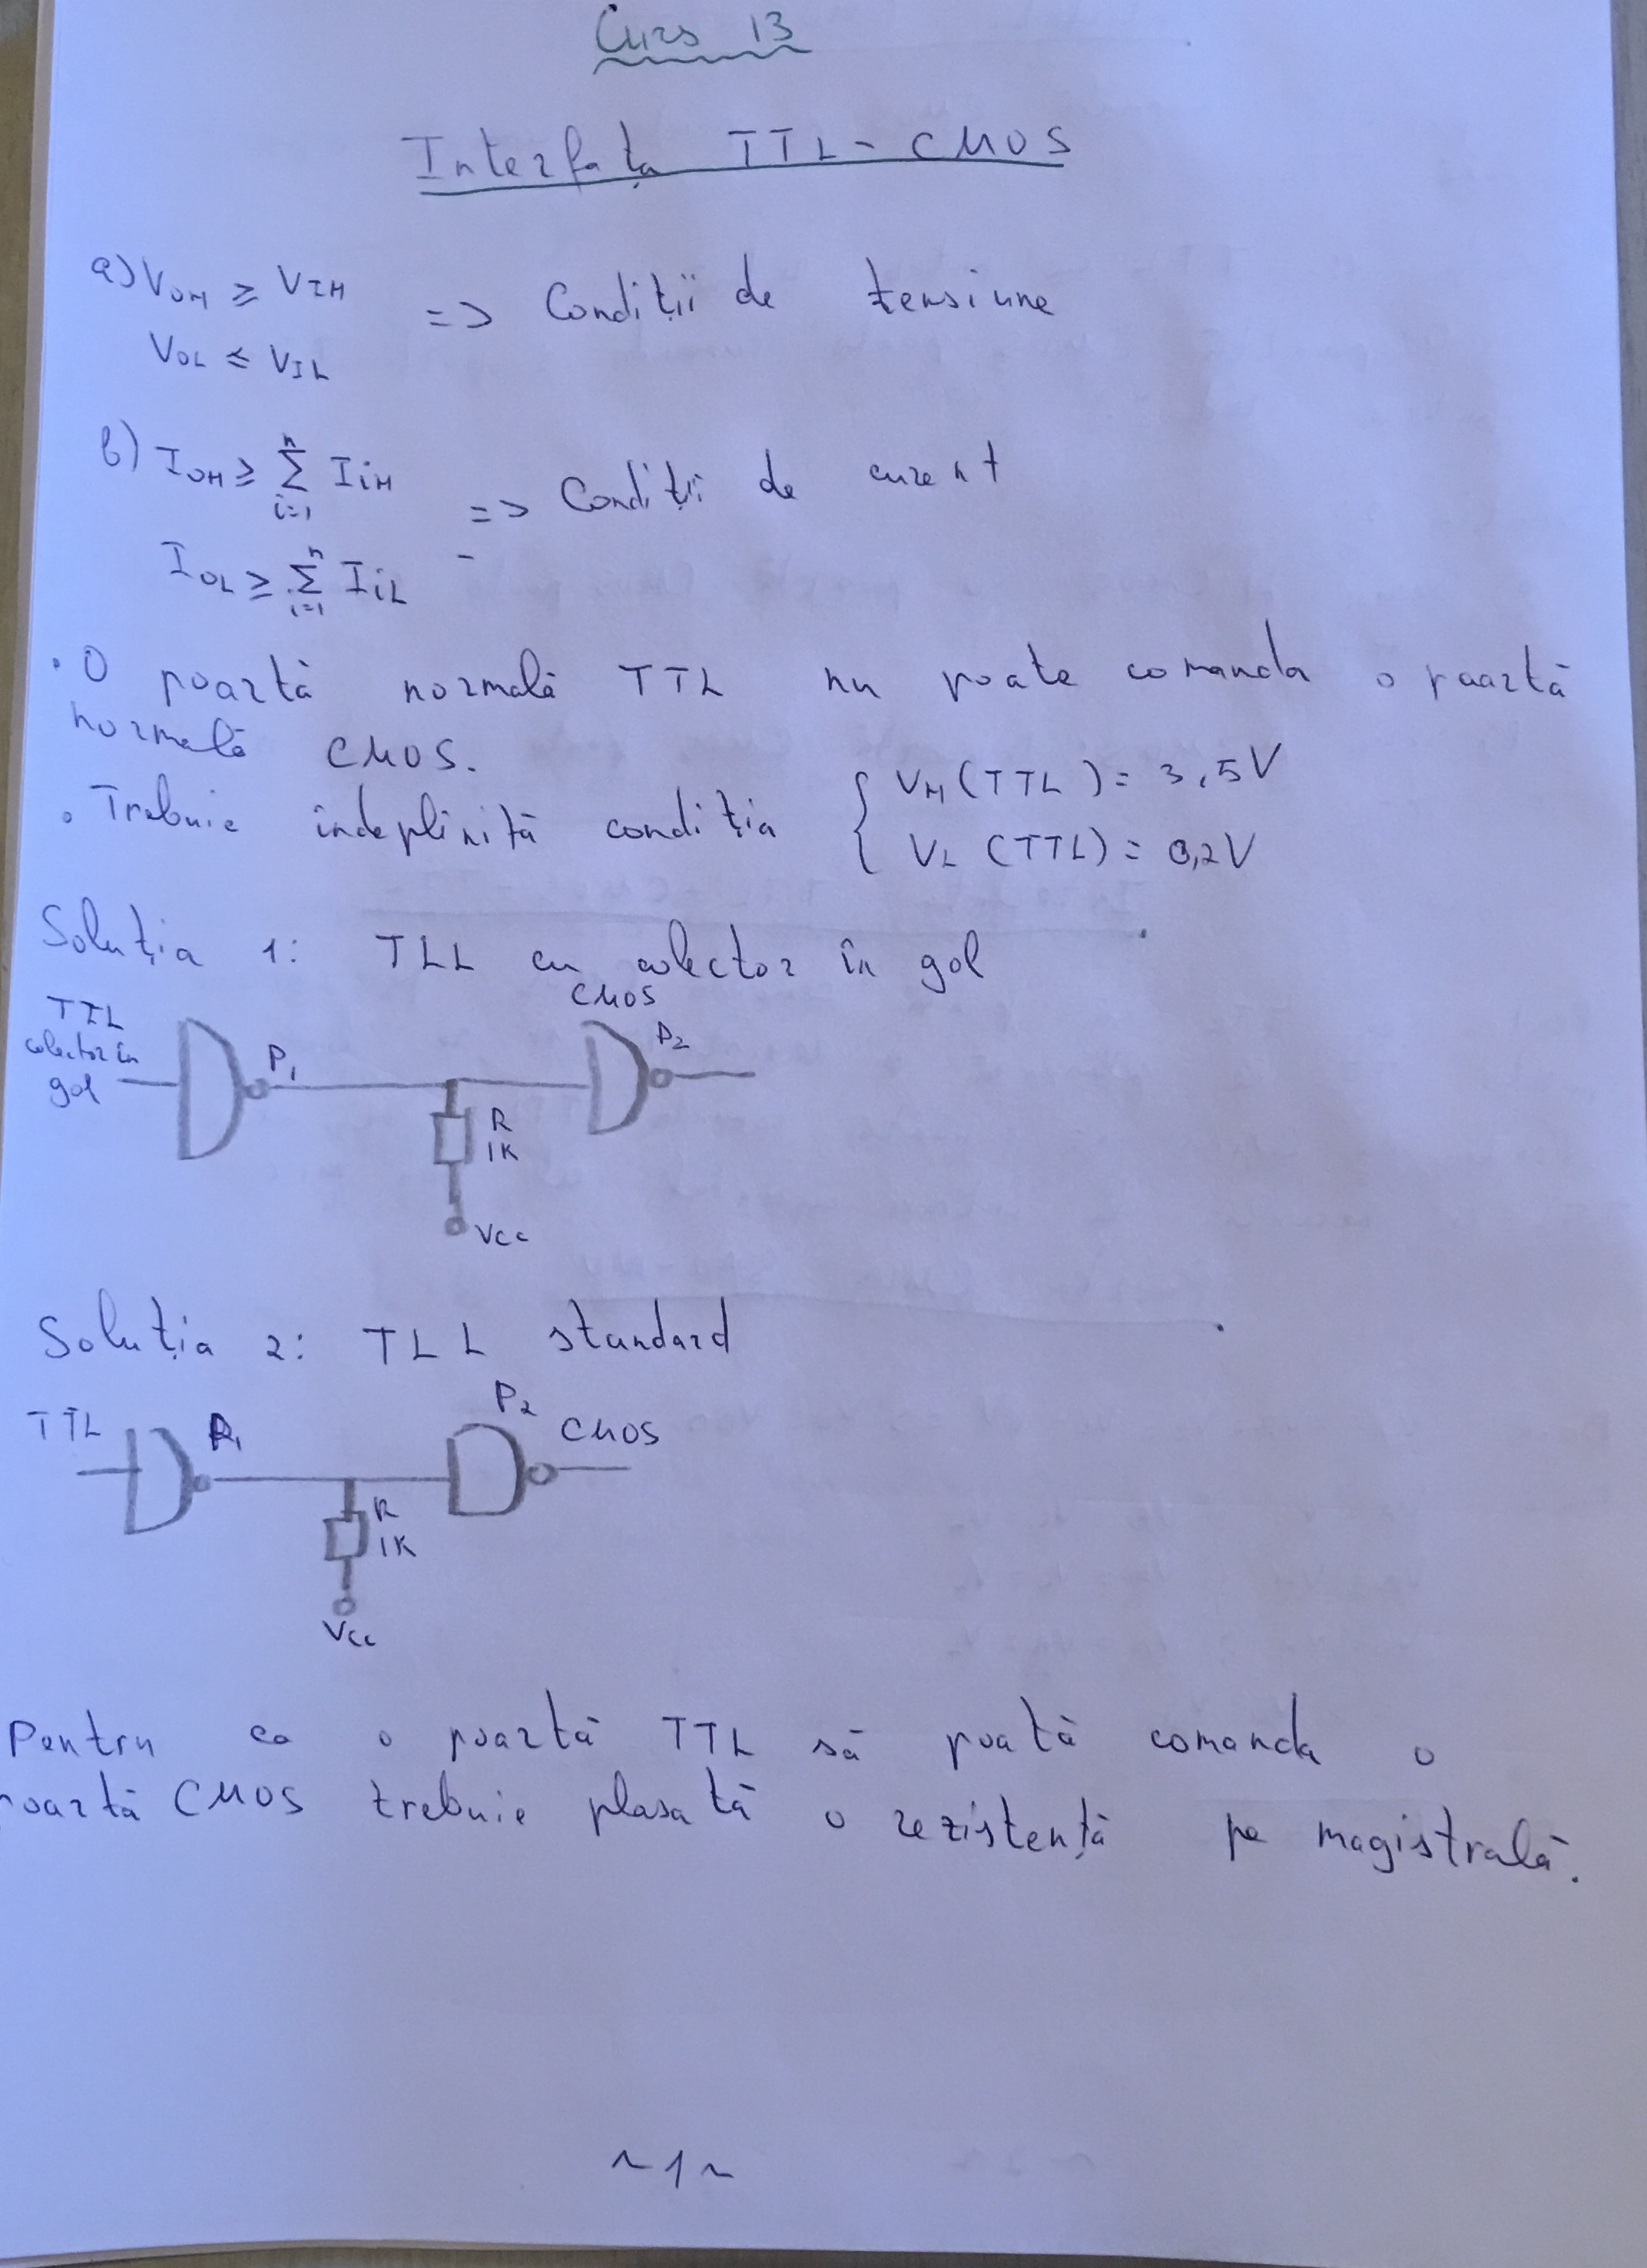 Curs 13
Interfața TTL - CMOS
a) VOH ≥ VIH
=> Condiții de tensiune
VOL ≤ VIL
b) IOH ≥ Σ IiH
n
i=1
=> Condiții de curent
IOL ≥ Σ IiL
n
i=1
• O poartă normală TTL nu poate comanda o paartă
normală CMOS.
• Trebuie îndeplinită condiția { VH (TTL) = 3,5V
VL (TTL) = 0,2V
Soluția 1: TLL cu colector în gol
TTL
colector în
gol
P1
CMOS
P2
R
1K
Vcc
Soluția 2: TLL standard
TTL
P1
P2
CMOS
R
1K
Vcc
Pentru ca o poartă TTL să poată comanda o
poartă CMOS trebuie plasată o rezistență pe magistrală.
~1~